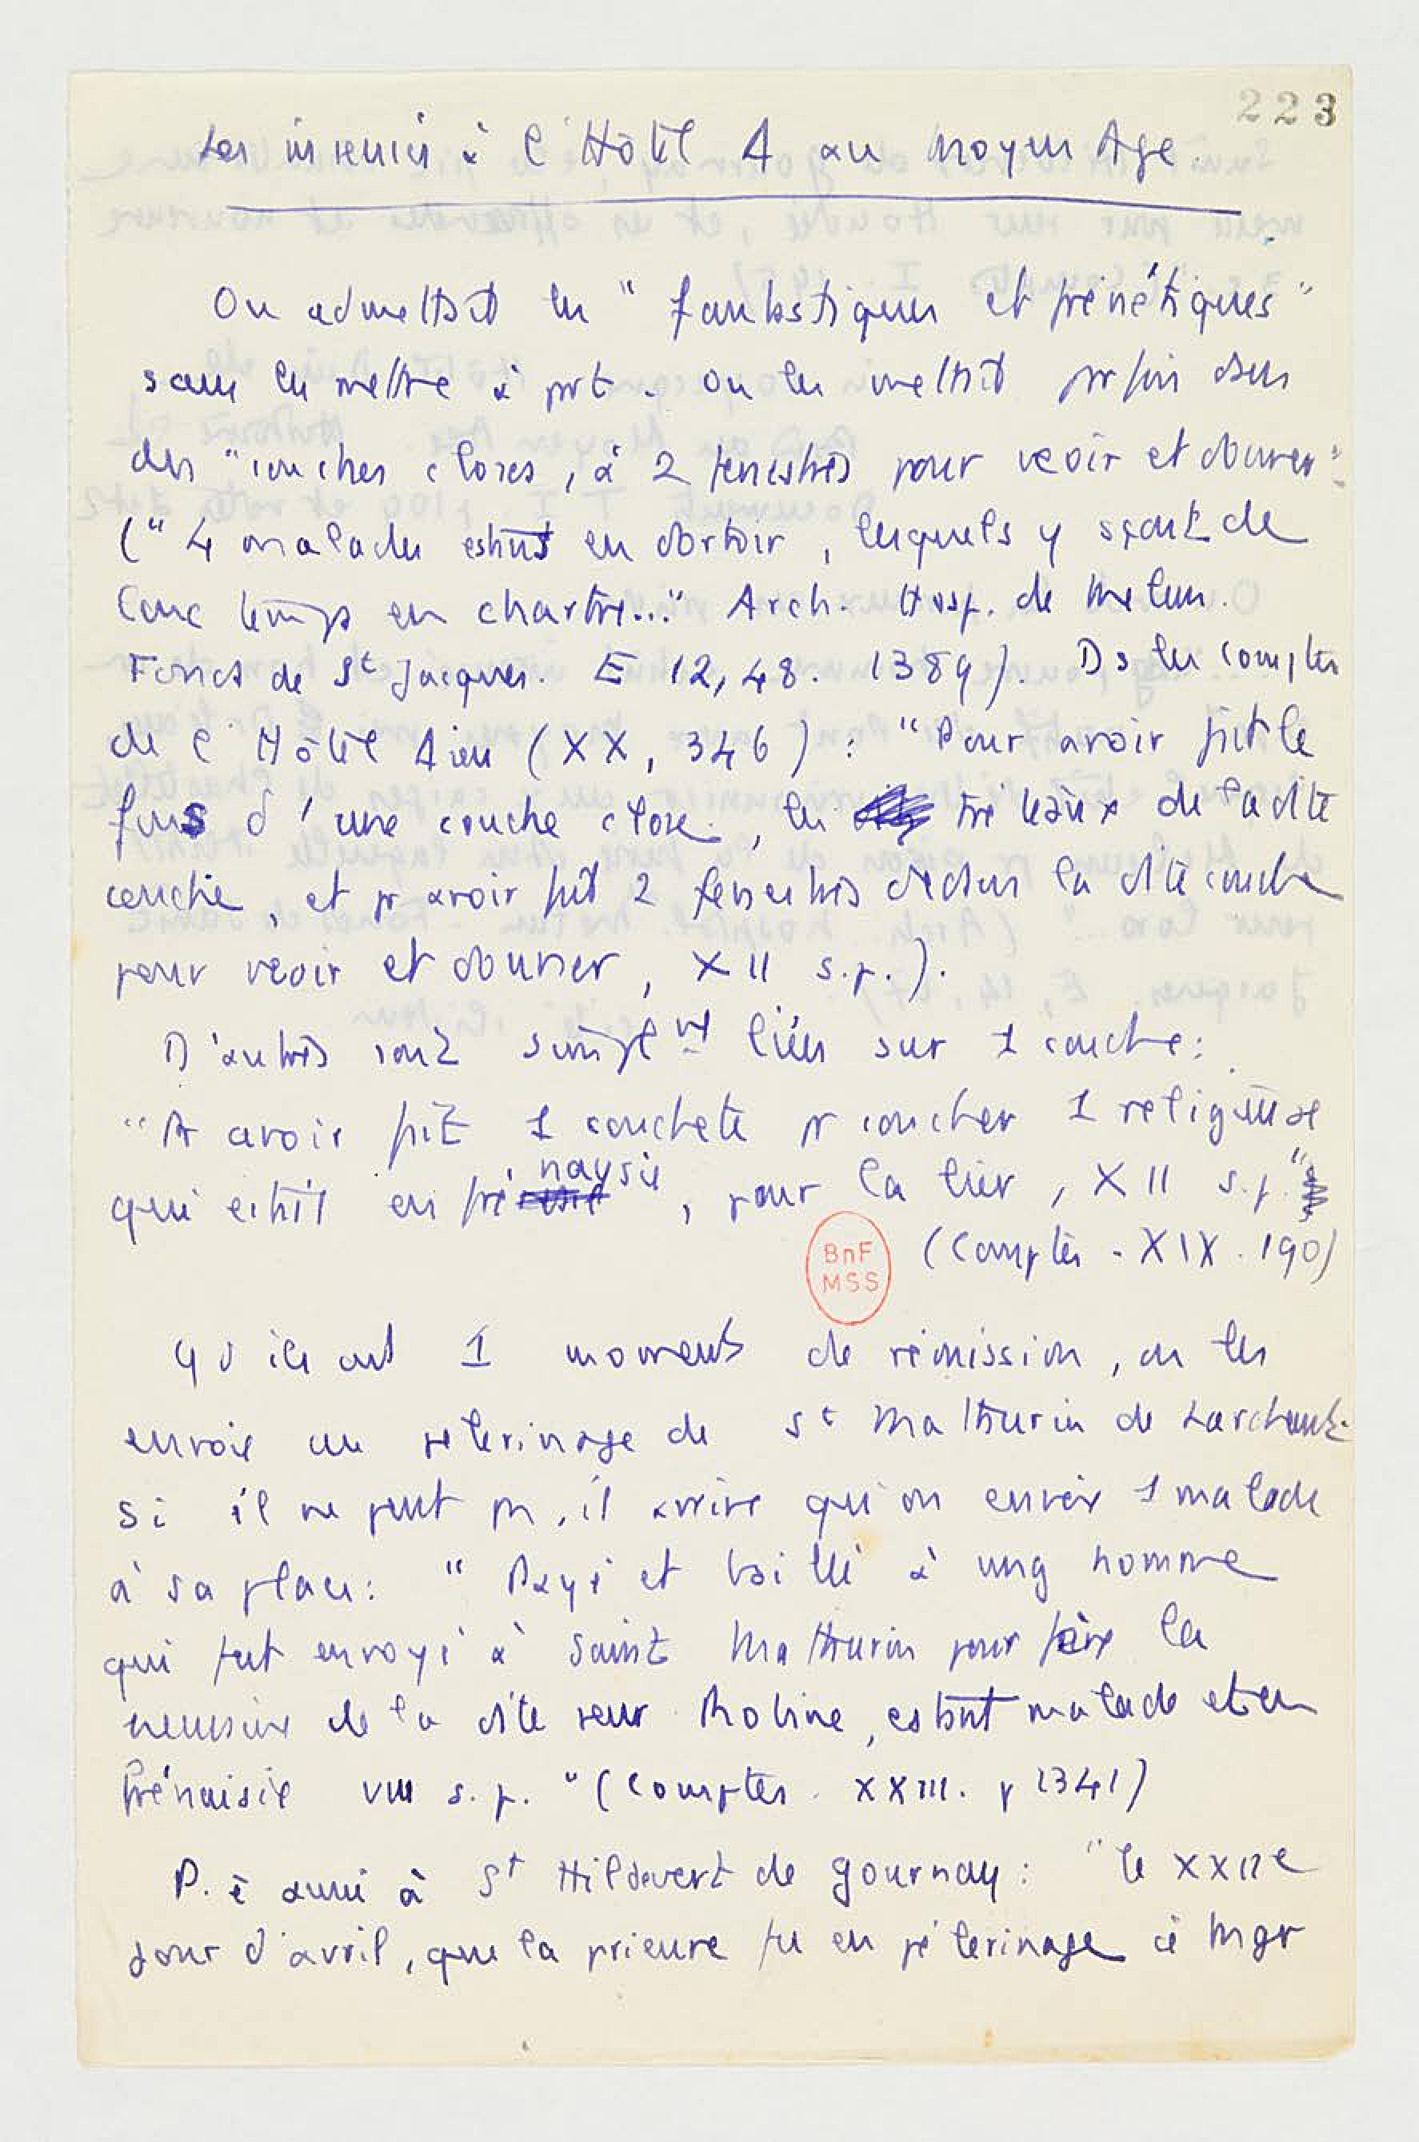 223
Les insensés à l'Hôtel D au Moyen Age.
On admettait les "fantastiques et frénétiques"
sans les mettre à part. On les mettait parfois dans
des "couches closes, à 2 fenestres pour veoir et donner"
("4 malades estant en dortoir, lesquels y sont de
lonc temps en chartre..." Arch. Hosp. de Melun.
Fonds de St Jacques. E 12, 48. 1389). Ds les comptes
de l'Hôtel Dieu (XX, 346) : "Pour avoir fait le
fons d'une couche close, les tréteaux de ladite
couche, et pr avoir fait 2 fenestres dedans la dite couche
pour veoir et donner, XII s.p.).
D'autres sont simplemt liés sur 1 couche :
"Pr avoir fait 1 couchete pr coucher 1 religieuse
qui estoit en frénaysie, pour la lier, XII s.p."
(Comptes - XIX. 190)
BnF
MSS
Qd ils ont 1 moment de rémission, on les
envoie au pelerinage de St Mathurin de Larchant.
Si il ne peut pas, il arrive qu'on envoie 1 malade
à sa place : "Payé et baillé à ung homme
qui fut envoyé à Saint Mathurin pour faire la
neuvaine de la dite seur Robine, estant malade et en
frénaisie VIII s.p." (Comptes. XXIII. p 1341)
P. ê aussi à St Hildevert de Gournay : "le XXIIe
jour d'avril, que la prieure fu en pélerinage à Mgr